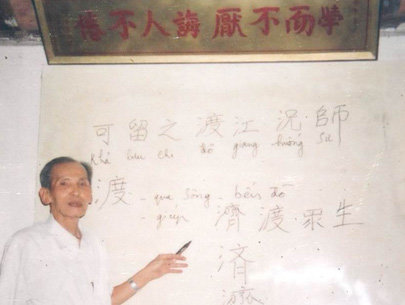 學而不厭誨人不倦
可留之渡江況師
Khả lưu chi độ giang huống sư
渡 - qua sông - bến đò
- giúp 濟渡衆生
済